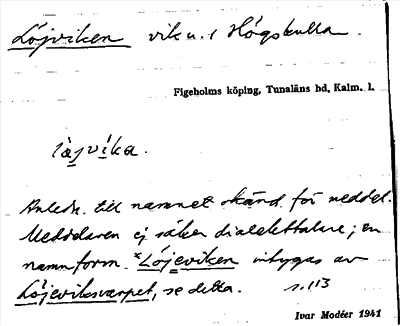 Löjviken vik u. / Högskulla.
Figeholms köping, Tunaläns hd, Kalm. l.
làjvíka.
Anledn. till namnet okänd för meddel.
Meddelaren ej säker dialekttalare; en
namnform *Löjeviken intygas av
Löjeviksvarpet, se detta. s. 113
Ivar Modéer 1941